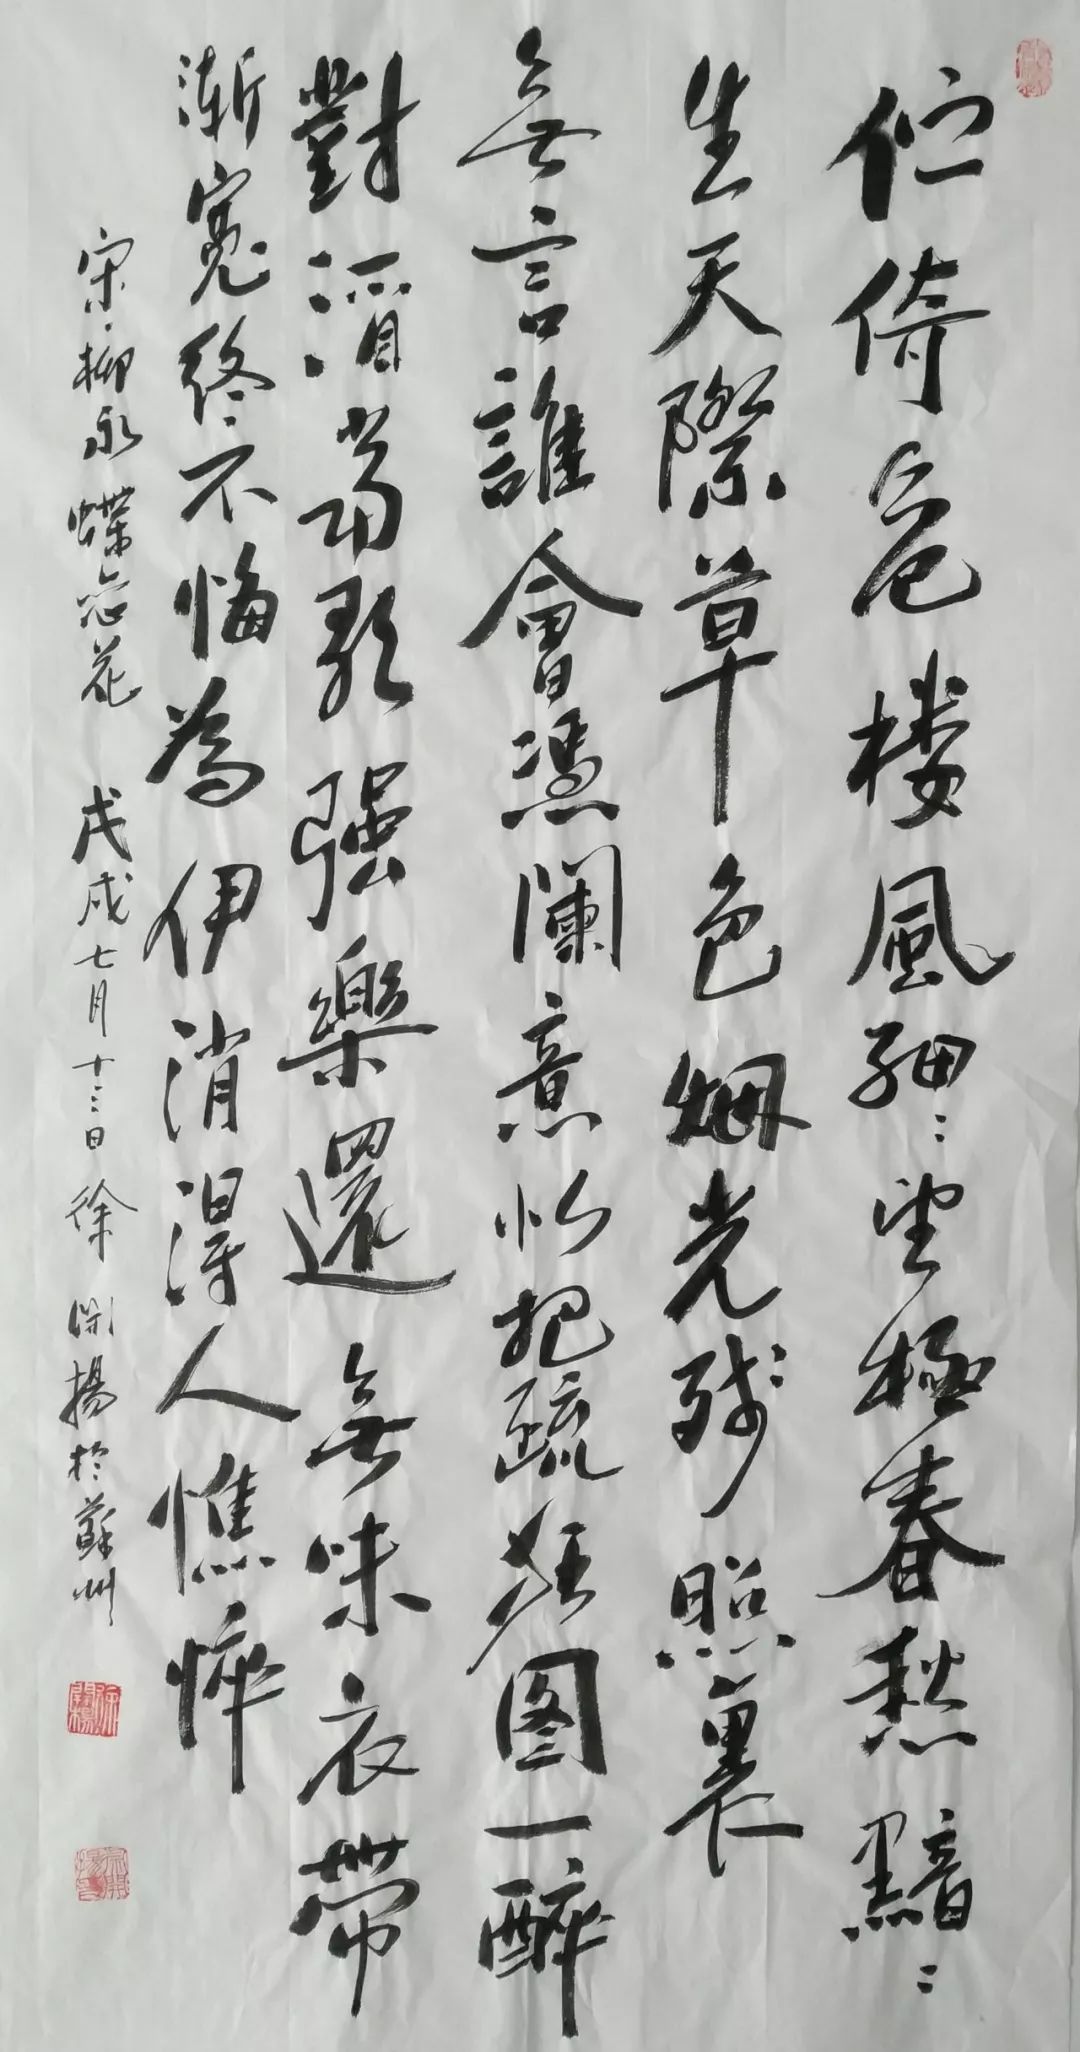 伫倚危楼風細〻望極春愁黯〻
生天際草色烟光残照裏
無言誰會憑闌意拟把疏狂图一醉
對酒當歌强樂還無味衣帶
漸寬終不悔為伊消得人憔悴
宋柳永蝶恋花 戊戌七月十三日徐開揚於蘇州